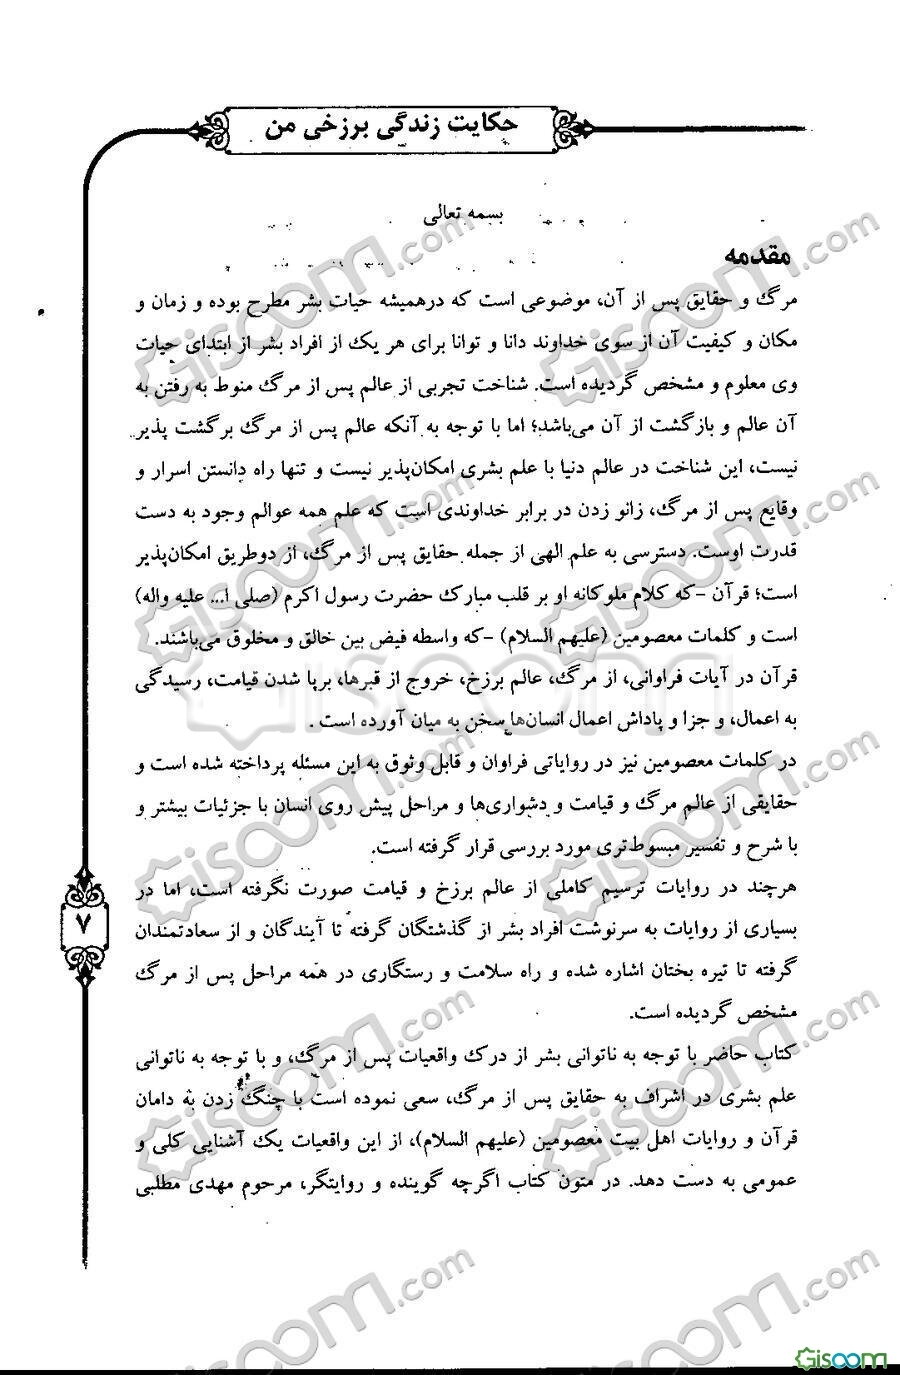 حکایت زندگی برزخی من
بسمه تعالی
مقدمه
مرگ و حقایق پس از آن، موضوعی است که درهمیشه حیات بشر مطرح بوده و زمان و
مکان و کیفیت آن از سوی خداوند دانا و توانا برای هر یک از افراد بشر از ابتدای حیات
وی معلوم و مشخص گردیده است. شناخت تجربی از عالم پس از مرگ منوط به رفتن به
آن عالم و بازگشت از آن می‌باشد؛ اما با توجه به آنکه عالم پس از مرگ برگشت پذیر
نیست، این شناخت در عالم دنیا با علم بشری امکان‌پذیر نیست و تنها راه دانستن اسرار و
وقایع پس از مرگ، زانو زدن در برابر خداوندی است که علم همه عوالم وجود به دست
قدرت اوست. دسترسی به علم الهی از جمله حقایق پس از مرگ، از دوطریق امکان‌پذیر
است؛ قرآن -که کلام ملوکانه او بر قلب مبارک حضرت رسول اکرم (صلی ا... علیه واله)
است و کلمات معصومین (علیهم السلام) -که واسطه فیض بین خالق و مخلوق می‌باشند.
قرآن در آیات فراوانی، از مرگ، عالم برزخ، خروج از قبرها، برپا شدن قیامت، رسیدگی
به اعمال، و جزا و پاداش اعمال انسان‌ها سخن به میان آورده است .
در کلمات معصومین نیز در روایاتی فراوان و قابل وثوق به این مسئله پرداخته شده است و
حقایقی از عالم مرگ و قیامت و دشواری‌ها و مراحل پیش روی انسان با جزئیات بیشتر و
با شرح و تفسیر مبسوط‌تری مورد بررسی قرار گرفته است.
هرچند در روایات ترسیم کاملی از عالم برزخ و قیامت صورت نگرفته است، اما در
بسیاری از روایات به سرنوشت افراد بشر از گذشتگان گرفته تا آیندگان و از سعادتمندان
گرفته تا تیره بختان اشاره شده و راه سلامت و رستگاری در همه مراحل پس از مرگ
مشخص گردیده است.
کتاب حاضر با توجه به ناتوانی بشر از درک واقعیات پس از مرگ، و با توجه به ناتوانی
علم بشری در اشراف به حقایق پس از مرگ، سعی نموده است با چنگ زدن به دامان
قرآن و روایات اهل بیت معصومین (علیهم السلام)، از این واقعیات یک آشنایی کلی و
عمومی به دست دهد. در متون کتاب اگرچه گوینده و روایتگر، مرحوم مهدی مطلبی
۷
Gisoom.com
Gisoom